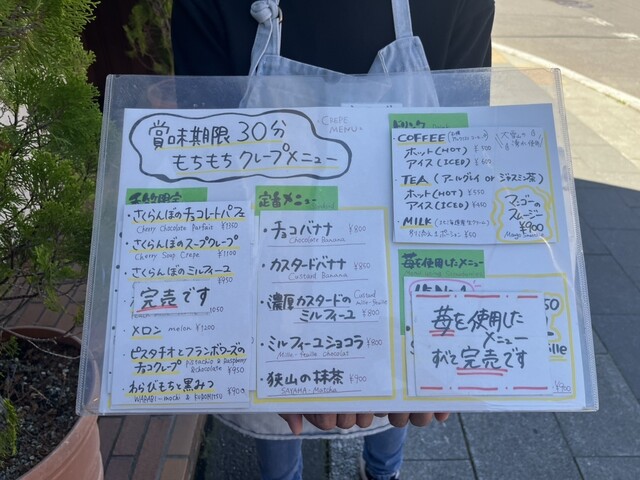 賞味期限30分
もちもちクレープメニュー
CREPE
MENU
さくらんぼのチョコレートパフェ
Cherry Chocolate Parfait ¥1150
さくらんぼのスープクレープ
Cherry Soup Crepe ¥1100
さくらんぼのミルフィーユ
¥950
完売です
メロン melon ¥1200
ピスタチオとフランボワーズの
チョコクレープ Pistachio & Raspberry
&chocolate ¥950
わらびもちと黒みつ
WARABI-mochi & KUROMITSU ¥900
定番メニュー
チョコバナナ ¥800
Chocolate Banana
カスタードバナナ ¥850
Custard Banana
濃厚カスタードの Custard
ミルフィーユ ¥800
ミルフィーユショコラ
Mille-feuille chocolat ¥800
狭山の抹茶 ¥900
SAYAMA-Matcha
ドリンク
COFFEE
ホット(HOT)
アイス(ICED)
TEA (アールグレイ or ジャスミン茶)
ホット(HOT) ¥550
アイス(ICED)
MILK
マンゴーの
スムージー
¥900
苺を使用したメニュー
苺を使用した
メニュー
すべて完売です